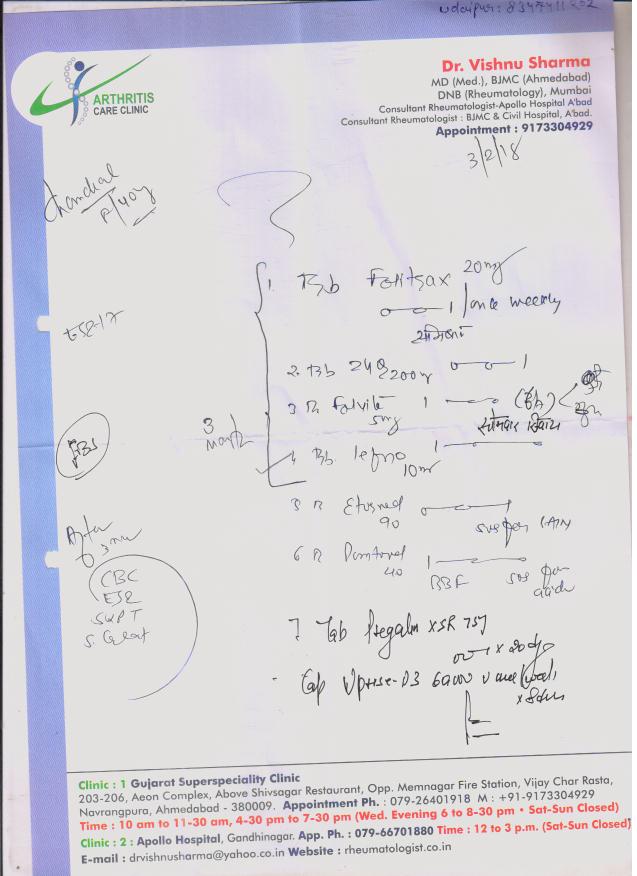 Udaipur: 8347411202
ARTHRITIS
CARE CLINIC
Dr. Vishnu Sharma
MD (Med.), BJMC (Ahmedabad)
DNB (Rheumatology), Mumbai
Consultant Rheumatologist-Apollo Hospital A'bad
Consultant Rheumatologist : BJMC & Civil Hospital, A'bad.
Appointment : 9173304929
3/2/18
/40y
1. Tab Folitrax 20mg
o—o—1 / once weekly
शनिवार
ESR-17
2. Tab
200m o—o—1
3 Folvite 1
5mg सोमवार
3
month
FBS
4 Tab lefno 1
10m
5 90
sos for pain
After
3 m
CBC
ESR
SGPT
S. Creat
6 40 1 BBF sos for
7 Tab Pregalin x SR 75
x 20 days
Cap Uprise-D3 60000 u once/week
x 8
Clinic : 1 Gujarat Superspeciality Clinic
203-206, Aeon Complex, Above Shivsagar Restaurant, Opp. Memnagar Fire Station, Vijay Char Rasta,
Navrangpura, Ahmedabad - 380009. Appointment Ph. : 079-26401918 M : +91-9173304929
Time : 10 am to 11-30 am, 4-30 pm to 7-30 pm (Wed. Evening 6 to 8-30 pm • Sat-Sun Closed)
Clinic : 2 : Apollo Hospital, Gandhinagar. App. Ph. : 079-66701880 Time : 12 to 3 p.m. (Sat-Sun Closed)
E-mail : drvishnusharma@yahoo.co.in Website : rheumatologist.co.in